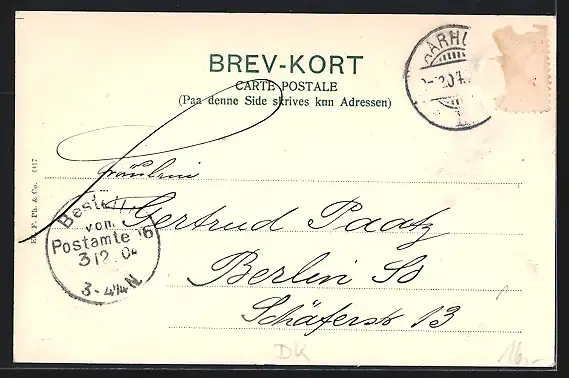 BREV-KORT
CARTE POSTALE
(Paa denne Side skrives kun Adressen)
AARHU
Fräulein
Gertrud Paatz
Berlin So
Schäferstr 13
Bestellt
vom
Postamte 16
3 12 04
3-4¼ N
Ph. & Co.
DK
16.-